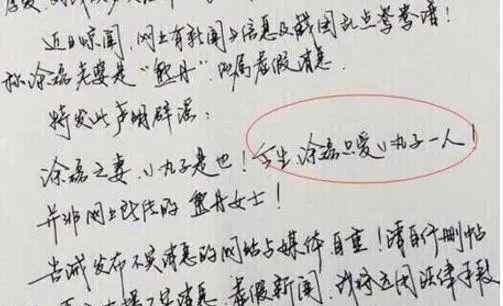 近日惊闻，网上有新闻与信息及截图乱点鸳鸯谱！
称涂磊老婆是“ 月”，均属虚假消息.
特发此声明辟谣：
涂磊之妻，小丸子是也！今生，涂磊只爱小丸子一人！
并非网上所传的 月女士！
告诫发布不实消息的网站与媒体，自重！请自行删帖
不实消息、虚假新闻，我将运用法律手段